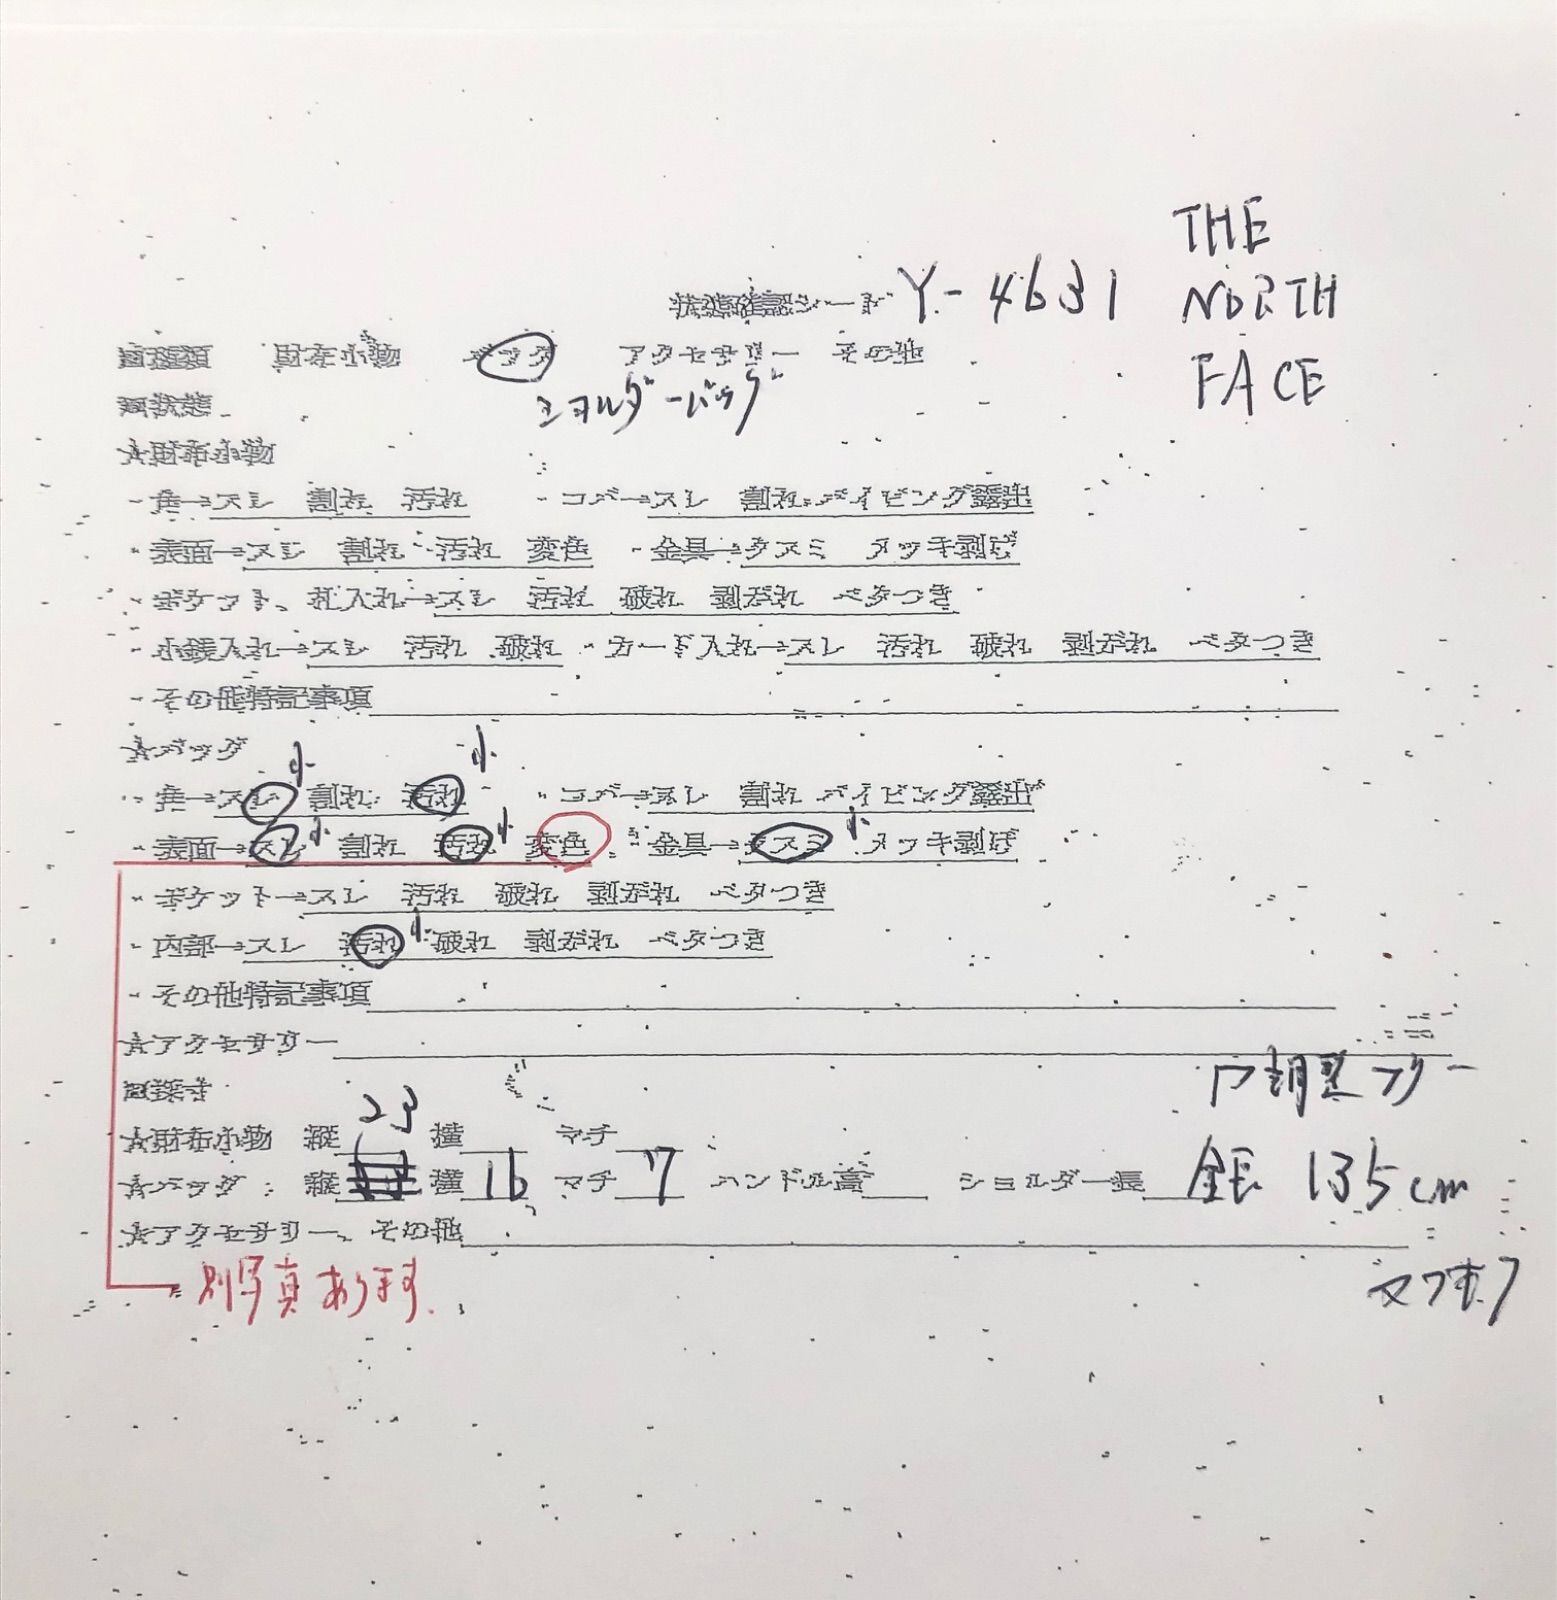 THE
NORTH
FACE
状態確認シート Y-4631
■種類 財布小物 バッグ アクセサリー その他
ショルダーバッグ
■状態
★財布小物
・角→スレ 割れ 汚れ ・コバ→スレ 割れ パイピング露出
・表面→スレ 割れ 汚れ 変色 ・金具→クスミ メッキ剥げ
・ポケット、札入れ→スレ 汚れ 破れ 剥がれ ベタつき
・小銭入れ→スレ 汚れ 破れ ・カード入れ→スレ 汚れ 破れ 剥がれ ベタつき
・その他特記事項
★バッグ
小 小
・角→スレ 割れ 汚れ ・コバ→スレ 割れ パイピング露出
・表面→スレ小 割れ 汚れ小 変色 ・金具→クスミ小 メッキ剥げ
・ポケット→スレ 汚れ 破れ 剥がれ ベタつき
・内部→スレ 汚れ小 破れ 剥がれ ベタつき
・その他特記事項
★アクセサリー
■採寸
フリー
23
★財布小物 縦 横 マチ
★バッグ：縦 横16 マチ17 ハンドル高 ショルダー長 全長 135cm
★アクセサリー、その他
別写真あります.